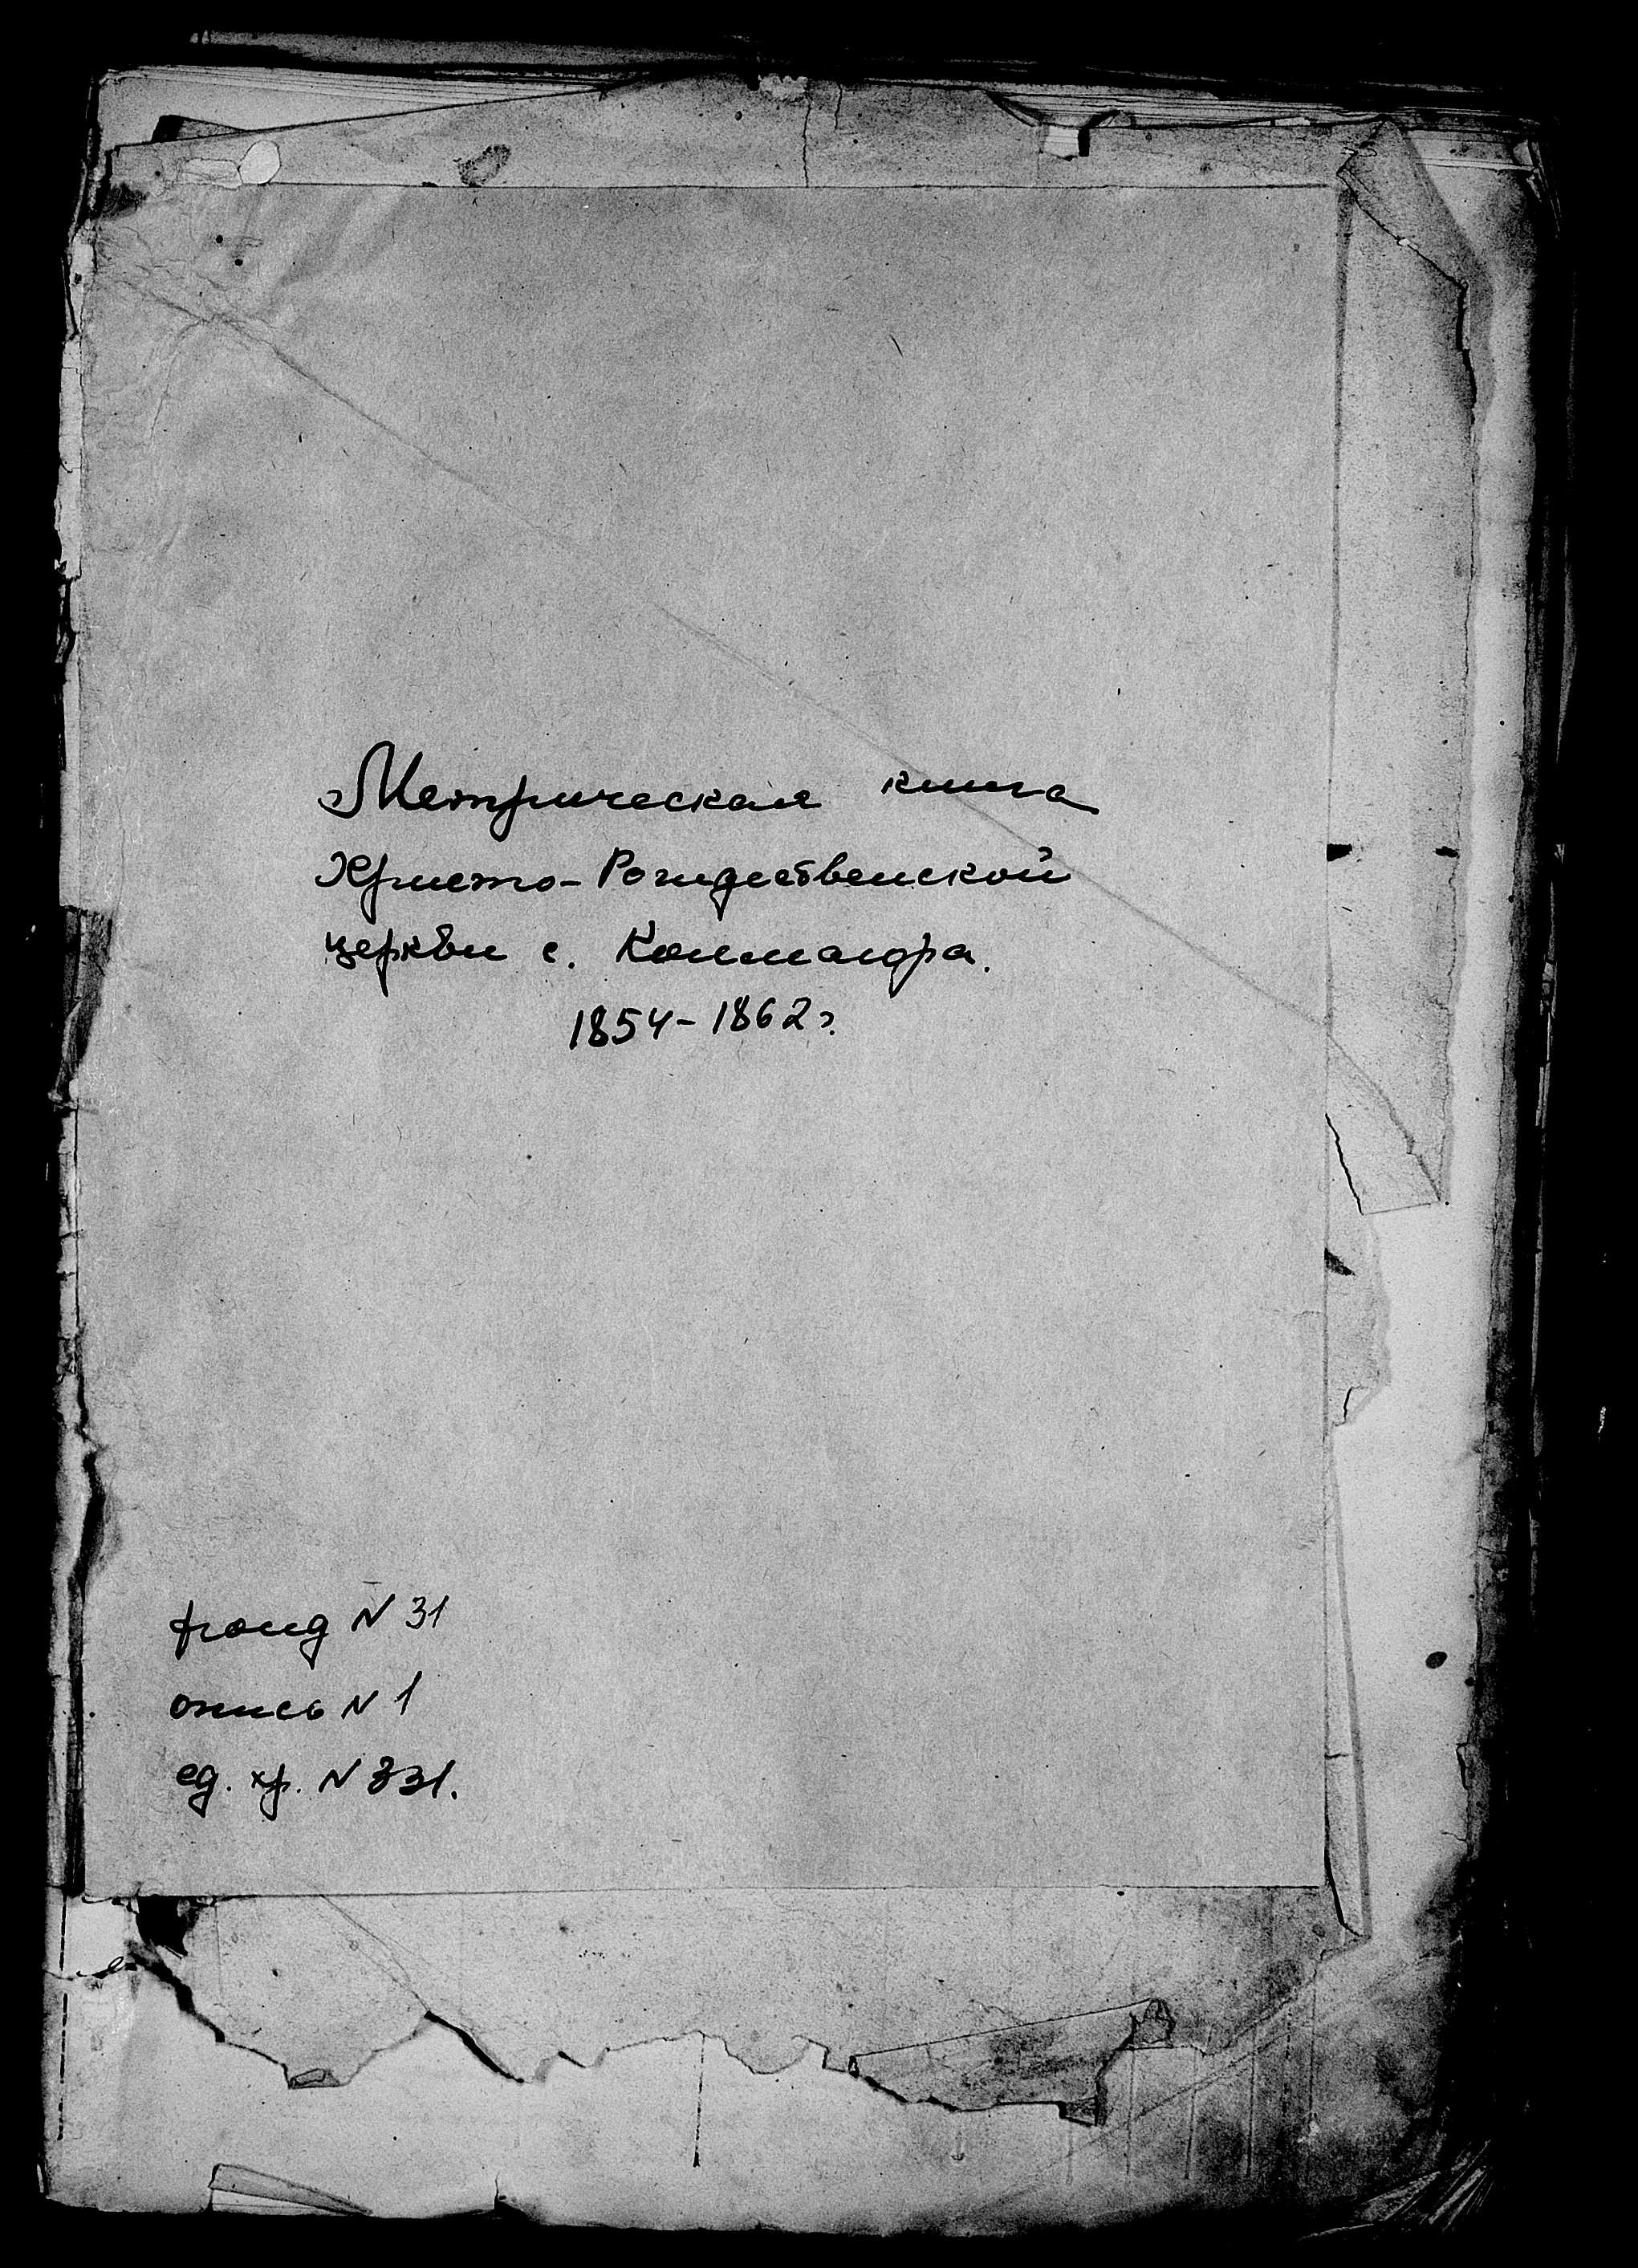 Метрическая книга
Христо-Рождественской
церкви с. Коштапора.
1854-1862г.
фонд N 31
опись N 1
ед. хр. N 331.